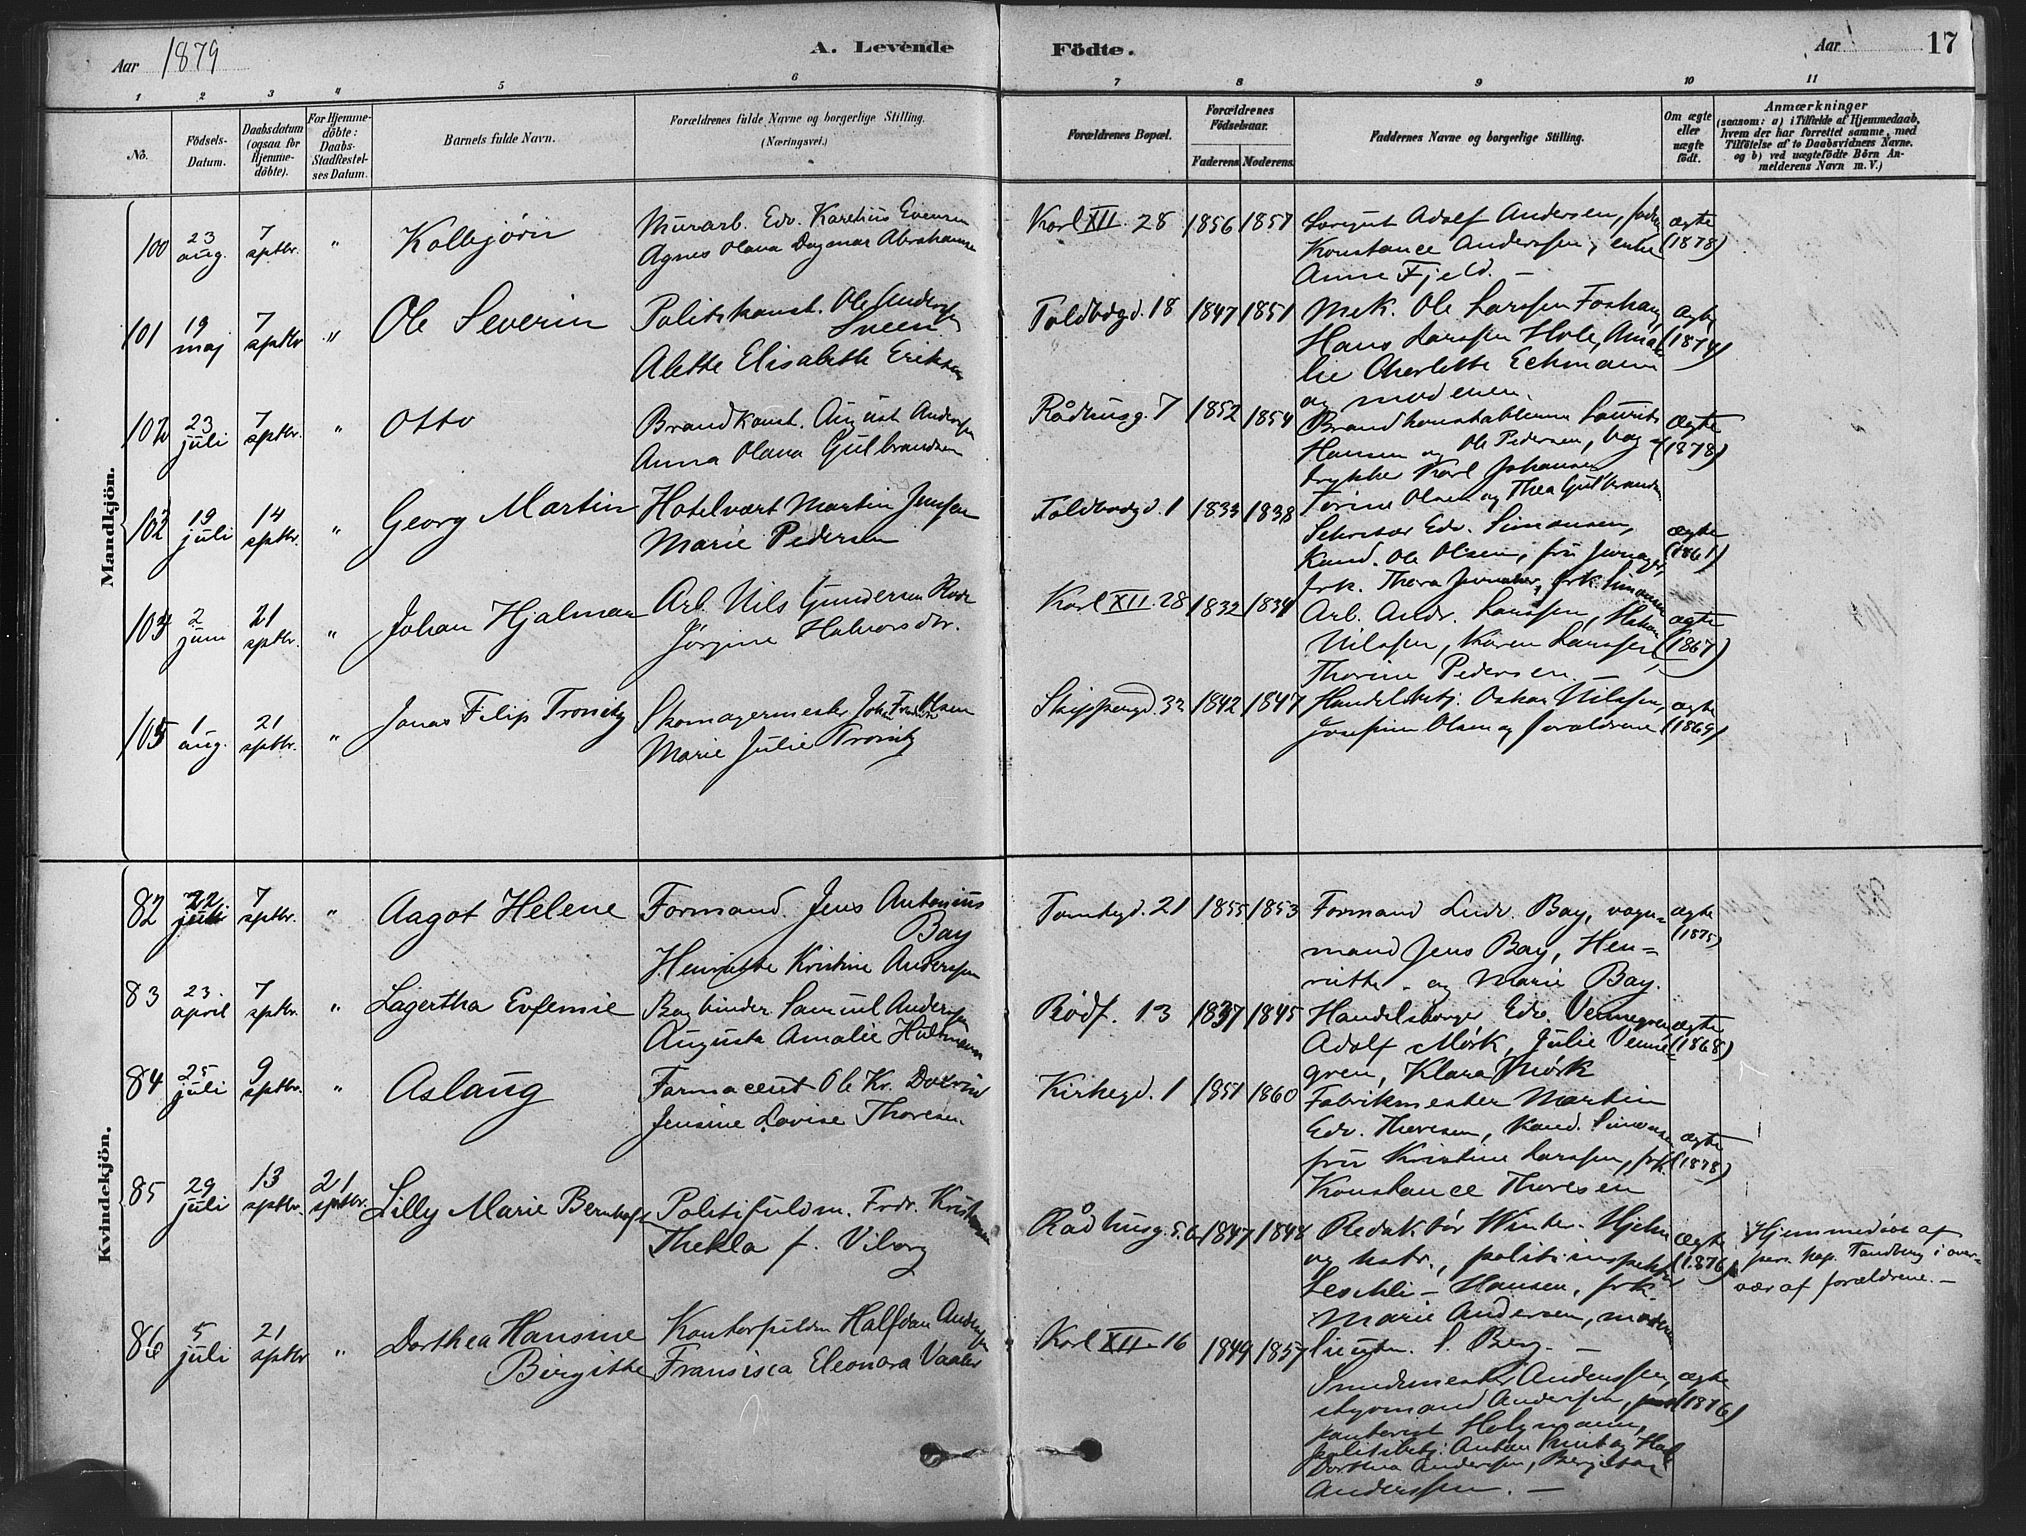 Aar 1879
A. Levende Födte.
Aar
17
1 2 3 4 5 6 7 8 9 10 11
No.
Födsels-
Datum.
Daabsdatum
(ogsaa for
Hjemme-
döbte).
For Hjemme-
döbte:
Daabs-
Stadfæstel-
ses Datum.
Barnets fulde Navn.
Forældrenes fulde Navne og borgerlige Stilling.
(Næringsvei.)
Forældrenes Bopæl.
Forældrenes
Födselsaar.
Faderens. Moderens.
Faddernes Navne og borgerlige Stilling.
Om ægte
eller
uægte
födt.
Anmærkninger
(saasom: a) i Tilfælde af Hjemmedaab,
hvem der har forrettet samme, med
Tilföielse af to Daabsvidners Navne,
og b) ved uægtefödte Börn An-
melderens Navn m. V.)
Mandkjön.
100 23 aug. 7 sptbr. " Kolbjørn
Murarb. Edv. Karelius Evensen
Agnes Olava Dagmar Abrahamsen
Karl XII. 28 1856 1857
Adolf Andersen,
Konstance Anderssen, enke
Anne Fjeld. —
ægte
(1878)
101 19 maj 7 sptbr " Ole Severin
Politikonst. Ole Anderssen
Sveen
Alette Elisabeth Eriksen
Toldbodgd. 18 1847 1851
Mek. Ole Larssen Foshaug,
Hans Larssen Hole, Ama-
lie Charlotte Eckmann
og moderen.
ægte
(1874)
102 23 juli 7 sptbr. " Otto
Brandkonst. August Anderssen
Anna Olava Gulbrandsen
Rådhusg. 7 1852 1854
Brandkonstablerne Laurits
Hansen og Ole Pedersen, bog-
trykker Karl Johansen
Torine Olsen og Thea Gulbrandsen
ægte
(1878)
103 19 juli 14 sptbr. " Georg Martin
Hotelvært Martin Jenssen
Marie Pedersen
Toldbodgd. 1 1833 1838
Sekretær Edv. Simonsen,
Kand. Ole Olsen, fru
frk. Thora frk. Simonsen
ægte
(1861)
104 2 juni 21 sptbr. " Johan Hjalmar
Arb. Nils Gundersen
Jörgine Halvorsdtr.
Karl XII. 28 1832 1834
Arb. Andr. Larssen,
Nilssen, Karen Larssen,
Thorine Pedersen. —
ægte
(1867)
105 1 aug. 21 sptbr. " Jonas Filip Tronsby
Skomagermester Joh. Fredrik Olsen
Marie Julie Tronsby
Skippergd. 32 1842 1847
Handelsbetj. Oskar Nilssen,
Josefine Olsen og forældrene
ægte
(1869)
Kvindekjön.
82 22 juli 7 sptbr. " Aagot Helene
Formand Jens Antonius
Bay
Henriette Kristine Anderssen
Tomtegd. 21 1855 1853
Formand Ludv. Bay, vogn-
mand Jens Bay, Hen-
riette - og Marie Bay.
ægte
(1875)
83 23 april 7 sptbr " Lagertha Evfemie
Bogbinder Samuel Anderssen
Augusta Amalie Holtmann
Rödf. 13 1837 1845
Handelsborger Edv. Vennegren
Adolf Mørk, Julie Venne-
gren, Klara Mørk
ægte
(1868)
84 25 juli 9 sptbr. " Aslaug
Farmaceut Ole Kr.
Jensine Lovise Thoresen.
Kirkegd. 1 1851 1860
Fabrikmester Martin
Edv. Thoresen, Kand. Simonsen
fru Kristine Larssen, frk.
Konstance Thoresen
ægte
(1878)
85 29 juli 13 sptbr. 21 sptbr. Lilly Marie Bernhoft
Politifuldm. Fredr. Kristensen
Thekla f. Viborg
Rådhusg. 5.6 1847 1848
Redaktør Winter-Hjelm
og hustr., politiinspektør
Hansen, frk.
Marie Andersen, moderen
Lieutn. S. Berg. —
ægte
(1876)
Hjemmedöbt af
pers. kap. Tandberg i over-
vær af forældrene. —
86 5 juli 21 sptbr " Dorthea Hansine
Birgitte
Kontorfuldm Halfdan Anderssen
Fransisca Eleonora Vaaler
Karl XII 16 1849 1857
Smedmester Anderssen,
styrmand Anderssen,
kontorist Helgmann,
politibetj. Anton
Dorthea Anderssen,
Anderssen. —
ægte
(1876)